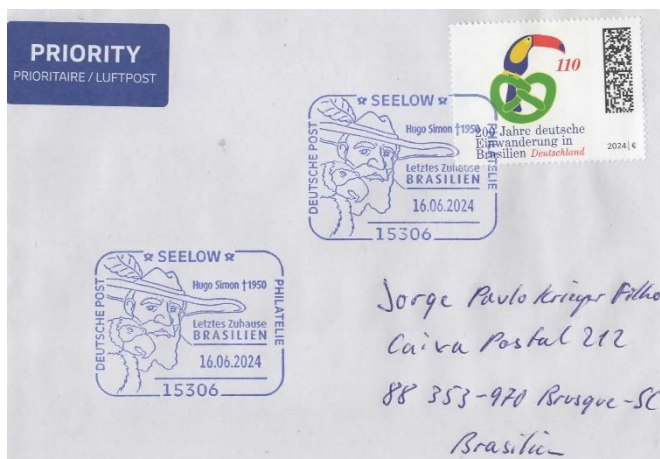 PRIORITY
PRIORITAIRE / LUFTPOST
110
200 Jahre deutsche
Einwanderung in
Brasilien Deutschland
2024 | €
SEELOW
DEUTSCHE POST
PHILATELIE
Hugo Simon †1950
Letztes Zuhause
BRASILIEN
16.06.2024
15306
SEELOW
DEUTSCHE POST
PHILATELIE
Hugo Simon †1950
Letztes Zuhause
BRASILIEN
16.06.2024
15306
Jorge Paulo Krieger Filho
Caixa Postal 212
88 353-970 Brusque-SC
Brasilien